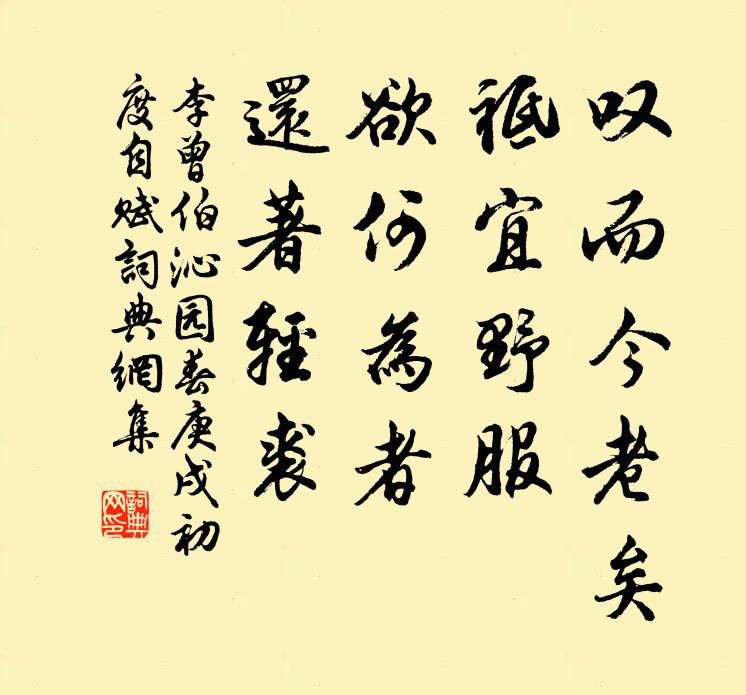 叹而今老矣
祗宜野服
欲何為者
還著輕裘
李曾伯沁园春庚戌初
度自赋詞典網集
詞典
网印